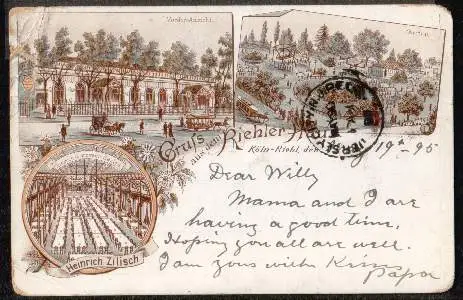 Vorder-Ansicht.
Gruss
aus dem Riehler
Köln-Riehl, den
19 95
Dear Willy
Mama and I are
having a good time.
Hoping you all are well.
I am yours with
Papa
Heinrich Zilisch